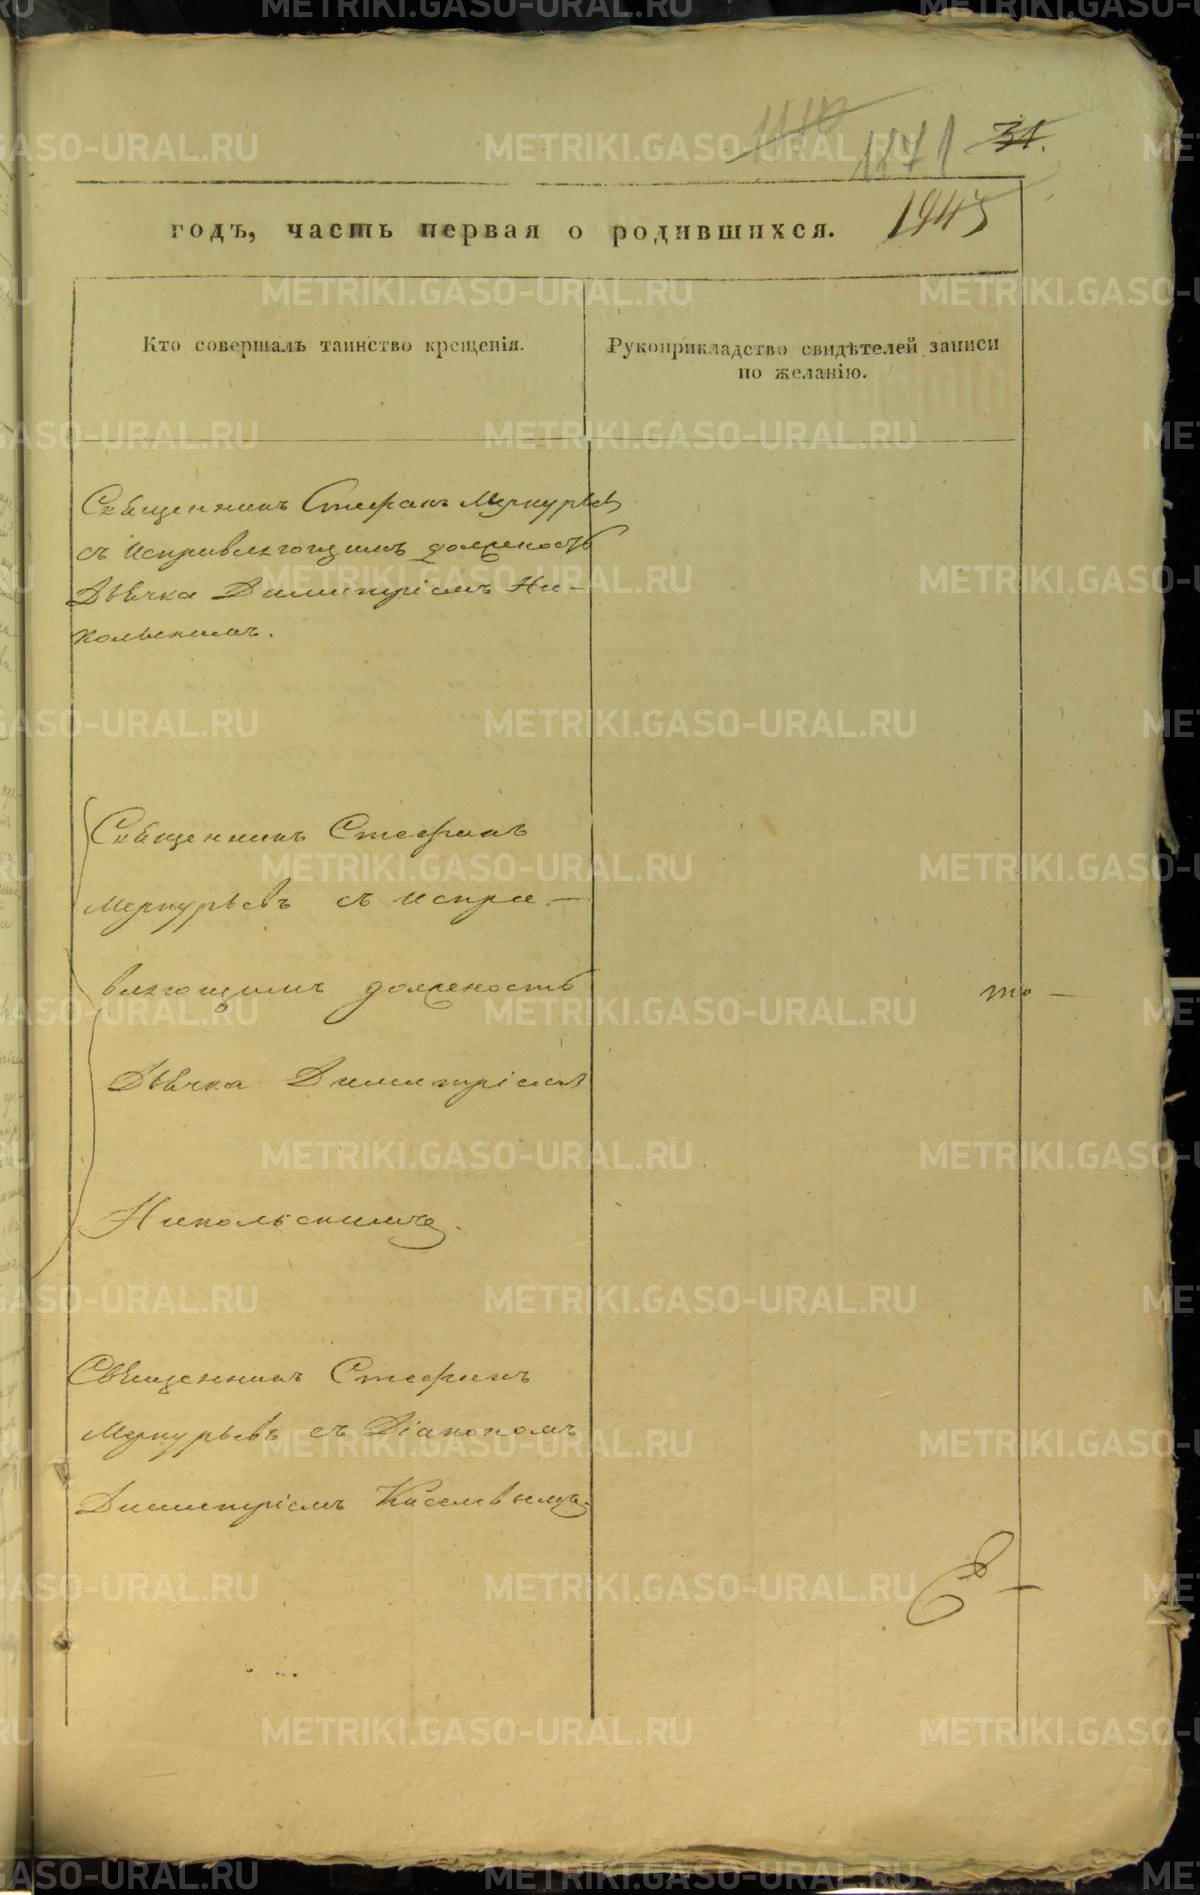 1171 31.
годъ, часть первая о родившихся.
Кто совершалъ таинство крещенія.
Рукоприкладство свидѣтелей записи
по желанію.
Священникъ Стефанъ Меркурьевъ
съ исправляющимъ должность
Дьячка Димитріемъ Ни-
кольскимъ.
Священникъ Стефанъ
Меркурьевъ съ испра-
вляющимъ должность
Дьячка Димитріемъ
Никольскимъ.
Священникъ Стефанъ
Меркурьевъ съ Діакономъ
Димитріемъ Киселевымъ.
METRIKI.GASO-URAL.RU